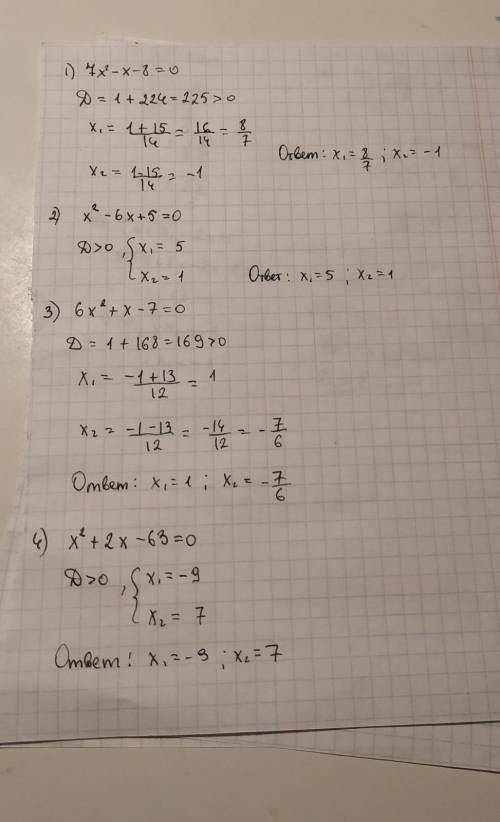 1) 7x² - x - 8 = 0
D = 1 + 224 = 225 > 0
x₁ = (1 + 15)/14 = 16/14 = 8/7
x₂ = (1 - 15)/14 = -1
Ответ: x₁ = 8/7 ; x₂ = -1
2) x² - 6x + 5 = 0
D > 0, { x₁ = 5
x₂ = 1
Ответ: x₁ = 5 ; x₂ = 1
3) 6x² + x - 7 = 0
D = 1 + 168 = 169 > 0
x₁ = (-1 + 13)/12 = 1
x₂ = (-1 - 13)/12 = -14/12 = -7/6
Ответ: x₁ = 1 ; x₂ = -7/6
4) x² + 2x - 63 = 0
D > 0, { x₁ = -9
x₂ = 7
Ответ: x₁ = -9 ; x₂ = 7